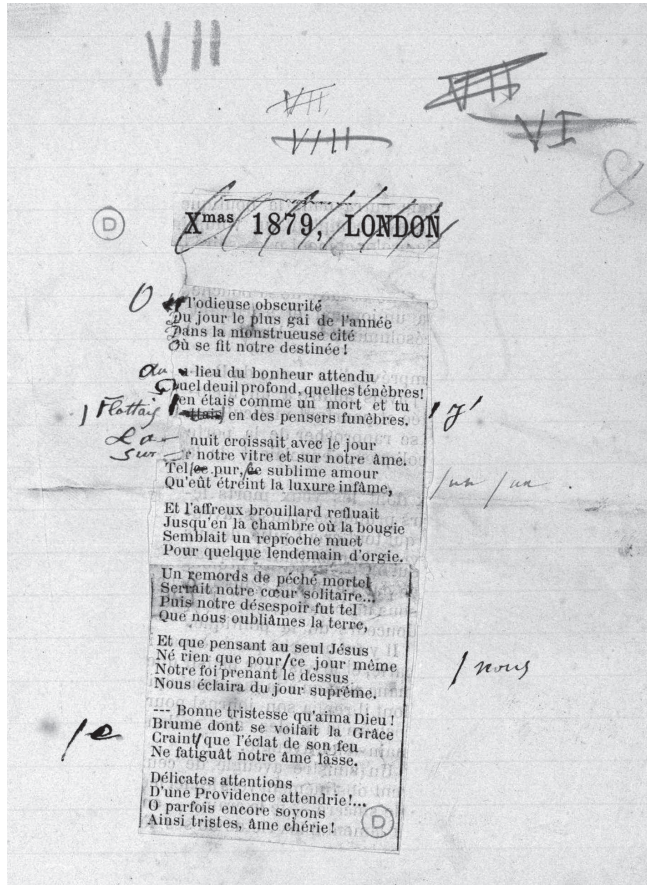 VII
VII
VIII
VII
VI
8
D
Xmas 1879, LONDON
O l'odieuse obscurité
Du jour le plus gai de l'année
Dans la monstrueuse cité
Où se fit notre destinée!
au lieu du bonheur attendu
Quel deuil profond, quelles ténèbres!
en étais comme un mort et tu / j'
/ Flottais en des pensers funèbres.
La nuit croissait avec le jour
sur notre vitre et sur notre âme.
Tel ce pur, ce sublime amour /un /un.
Qu'eût étreint la luxure infâme,
Et l'affreux brouillard refluait
Jusqu'en la chambre où la bougie
Semblait un reproche muet
Pour quelque lendemain d'orgie.
Un remords de péché mortel
Serrait notre cœur solitaire...
Puis notre désespoir fut tel
Que nous oubliâmes la terre,
Et que pensant au seul Jésus
Né rien que pour/ce jour même / nous
Notre foi prenant le dessus
Nous éclaira du jour suprême.
--- Bonne tristesse qu'aima Dieu!
Brume dont se voilait la Grâce
/e Craint/que l'éclat de son feu
Ne fatiguât notre âme lasse.
Délicates attentions
D'une Providence attendrie!...
O parfois encore soyons
Ainsi tristes, âme chérie!
D